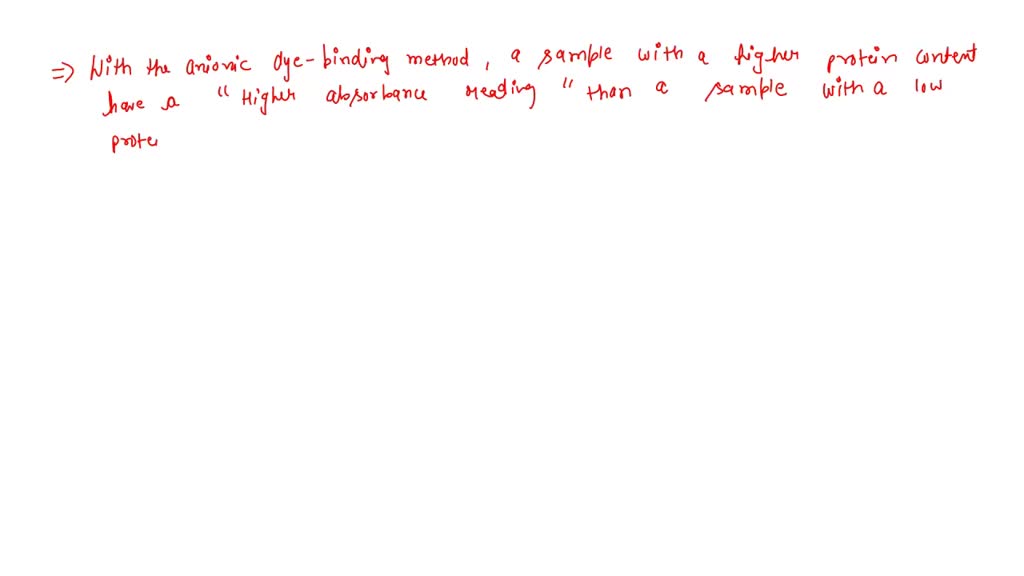 => With the anionic dye-binding method, a sample with a higher protein content
have a "Higher absorbance reading" than a sample with a low
prote